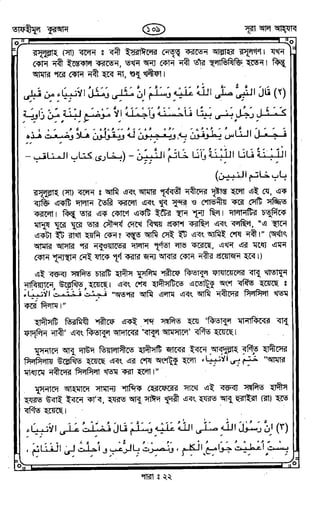 তাফহীমুল কুরআন
১০৯
সূরা আল আহযাব
রসূলুল্লাহ (সা) বলেন : বনী ইসরাঈলের নেতৃত্ব করতেন আল্লাহর রসূলগণ। যখন
কোন নবী ইন্তেকাল করতেন, তখন অন্য কোন নবী তাঁর স্থলাভিষিক্ত হতেন। কিন্তু
আমার পরে কোন নবী হবে না, শুধু খলীফা।
(২) قال النبى صلى الله عليه وسلم ان مثلى ومثل الانبياء من قبلى
كمثل رجل بنى بيتا فاحسنه واجمله الا موضع لبنة من زاوية
فجعل الناس يطوفون به ويعجبون له ويقولون هلا وضعت هذه
اللبنة فانا اللبنة وانا خاتم النبيين - (بخارى كتاب المناقب -
باب خاتم النبين)
রসূলুল্লাহ (সা) বলেন : আমি এবং আমার পূর্ববর্তী নবীদের দৃষ্টান্ত হলো এই যে, এক
ব্যক্তি একটি দালান তৈরি করলো এবং খুব সুন্দর ও শোভনীয় করে সেটি সজ্জিত
করলো। কিন্তু তার এক কোণে একটি ইটের স্থান শূন্য ছিল। দালানটির চতুর্দিকে
মানুষ ঘুরে ঘুরে তার সৌন্দর্য দেখে বিস্ময় প্রকাশ করছিল এবং বলছিল, "এ স্থানে
একটা ইট রাখা হয়নি কেন? বস্তুত আমি সেই ইট এবং আমিই শেষ নবী।" (অর্থাৎ
আমার আসার পর নবুওয়াতের দালান পূর্ণতা লাভ করেছে, এখন এর মধ্যে এমন
কোন শূন্যস্থান নেই যাকে পূর্ণ করার জন্য আবার কোন নবীর প্রয়োজন হবে।)
এই বক্তব্য সম্বলিত চারটি হাদীস মুসলিম শরীফে কিতাবুল ফাযায়েলের বাবু খাতামুন
নাবিয়্যানে উল্লেখিত হয়েছে। এবং শেষ হাদীসটিতে এতোটুকু অংশ বর্ধিত হয়েছে :
فجئت فختمت الانبياء "অতপর আমি এলাম এবং আমি নবীদের সিলসিলা খতম
করে দিলাম।"
হাদীসটি তিরমিযী শরীফে একই শব্দ সম্বলিত হয়ে 'কিতাবুল মানাকিবের বাবু
ফাদলিন নাবী' এবং কিতাবুল আদাবের 'বাবুল আমসালে' বর্ণিত হয়েছে।
মুসনাদে আবু দাউদ তিয়ালাসীতে হাদীসটি জাবের ইবনে আবদুল্লাহ বর্ণিত হাদীসের
সিলসিলায় উল্লেখিত হয়েছে এবং এর শেষ অংশটুকু হলো ختم بى الانبياء "আমার
মাধ্যমে নবীদের সিলসিলা খতম করা হলো।"
মুসনাদে আহমাদে সামান্য শাব্দিক হেরফেরের সাথে এই বক্তব্য সম্বলিত হাদীস
হযরত উবাই ইবনে কা'ব, হযরত আবু সাঈদ খুদরী এবং হযরত আবু হুরাইরা (রা) হতে
বর্ণিত হয়েছে।
(৩) ان رسول الله صلى الله عليه وسلم قال فضلت على الانبياء
بست اعطيت جوامع الكلم ، ونصرت بالرعب و احلت لى الغنائم ،
পারা : ২২